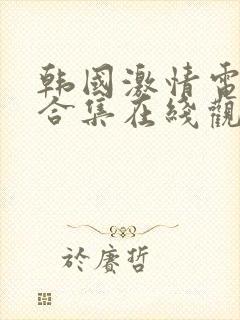 韩國激情電
合集在綫觀
於賡哲